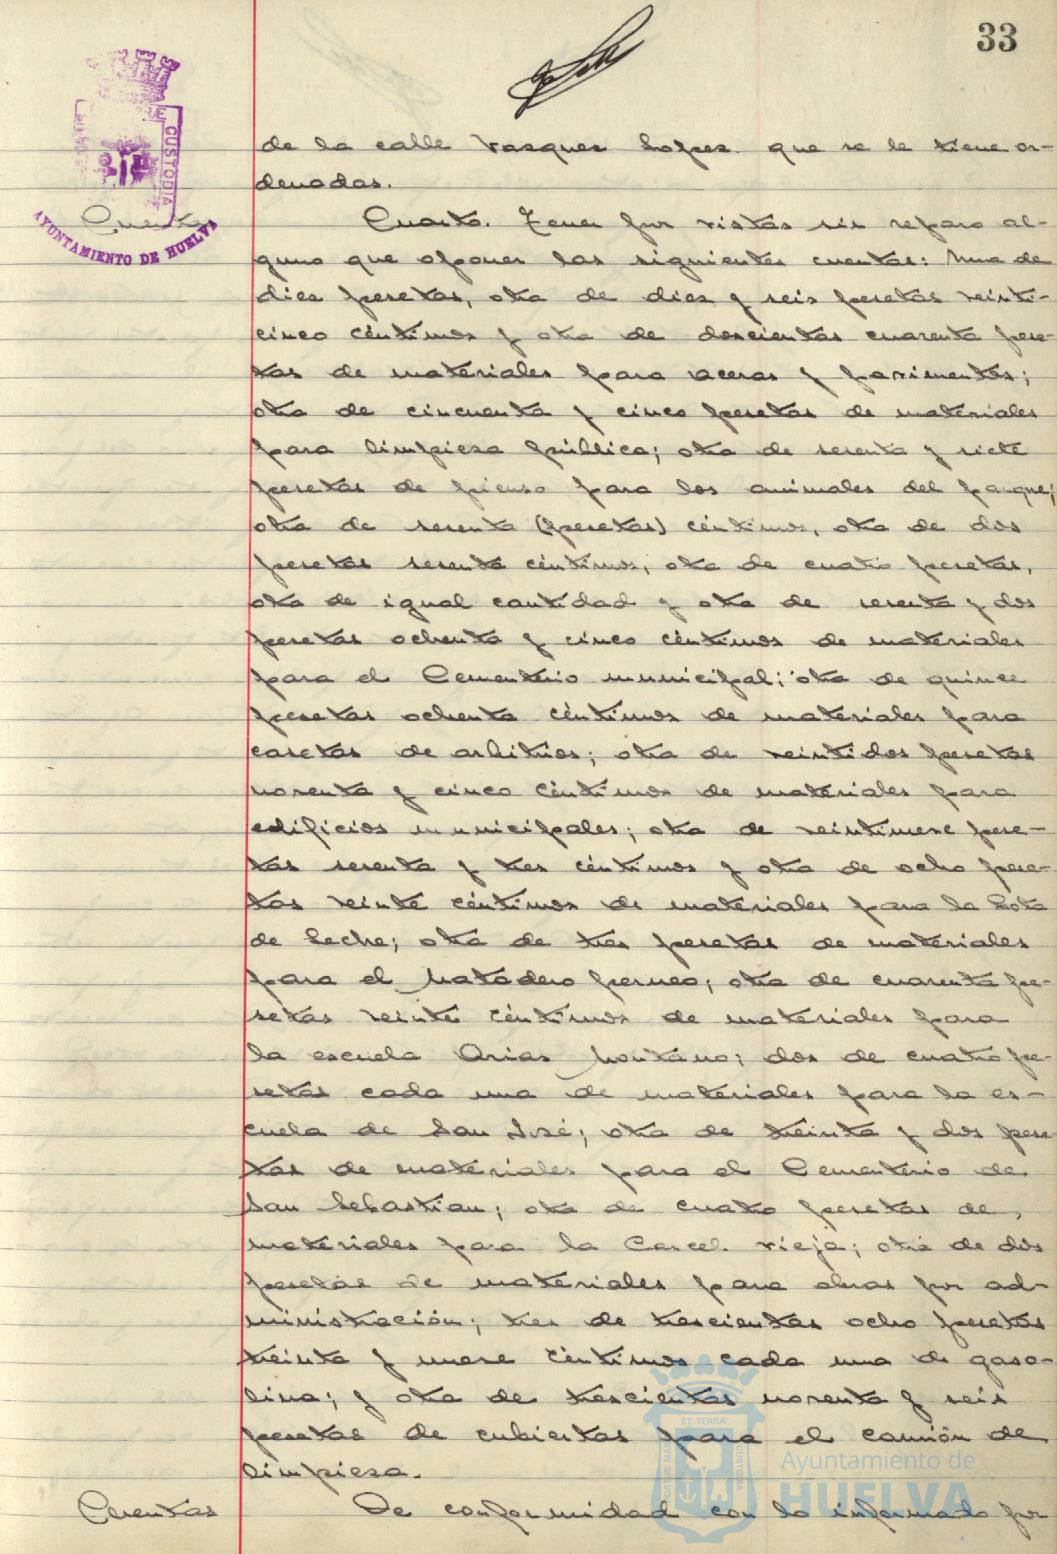 33
de la calle Vasques Lopes que se le tiene or-
denadas.
CUSTODIA
AYUNTAMIENTO DE HUELVA
Cuentas
Cuarto. Tener por vistas sin reparo al-
guno que oponer las siguientes cuentas: Una de
dies pesetas, otra de dies y seis pesetas veinti-
cinco céntimos y otra de doscientas cuarenta pese-
tas de materiales para aceras y pavimentos;
otra de cincuenta y cinco pesetas de materiales
para limpiesa pública; otra de sesenta y siete
pesetas de pienso para los animales del parque;
otra de sesenta (pesetas) céntimos, otra de dos
pesetas sesenta céntimos, otra de cuatro pesetas,
otra de igual cantidad y otra de sesenta y dos
pesetas ochenta y cinco céntimos de materiales
para el Cementerio municipal; otra de quince
pesetas ochenta céntimos de materiales para
casetas de arbitrios; otra de veintidos pesetas
noventa y cinco céntimos de materiales para
edificios municipales; otra de veintinueve pese-
tas sesenta y tres céntimos y otra de ocho pese-
tas veinte céntimos de materiales para la Gota
de Leche; otra de tres pesetas de materiales
para el Matadero permeo; otra de cuarenta pe-
setas veinte céntimos de materiales para
la escuela Arias Montano; dos de cuatro pe-
setas cada una de materiales para la es-
cuela de San José; otra de treinta y dos pese-
tas de materiales para el Cementerio de
San Sebastian; otra de cuatro pesetas de
materiales para la Carcel vieja; otra de dos
pesetas de materiales para obras por ad-
ministración; tres de trescientas ocho pesetas
treinta y nueve céntimos cada una de gaso-
lina; y otra de trescientas noventa y seis
pesetas de cubiertas para el camión de
limpiesa.
Ayuntamiento de
HUELVA
Cuentas
De conformidad con lo informado por